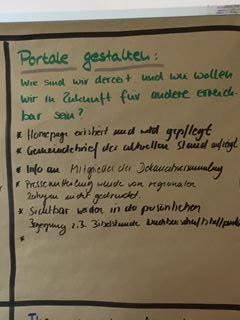 Portale gestalten:
Wie sind wir derzeit und wie wollen
wir in Zukunft für andere erreich-
bar sein?
* Homepage existiert und wird gepflegt
* Gemeindebrief der aktuellen Stand
* Info an Mitglieder der Dekanatsversammlung
* Pressemitteilung wurde von regionalen
Zeitungen nicht gedruckt.
* Sichtbar werden in der persönlichen
Begegnung z.B. Bibelstunde
*